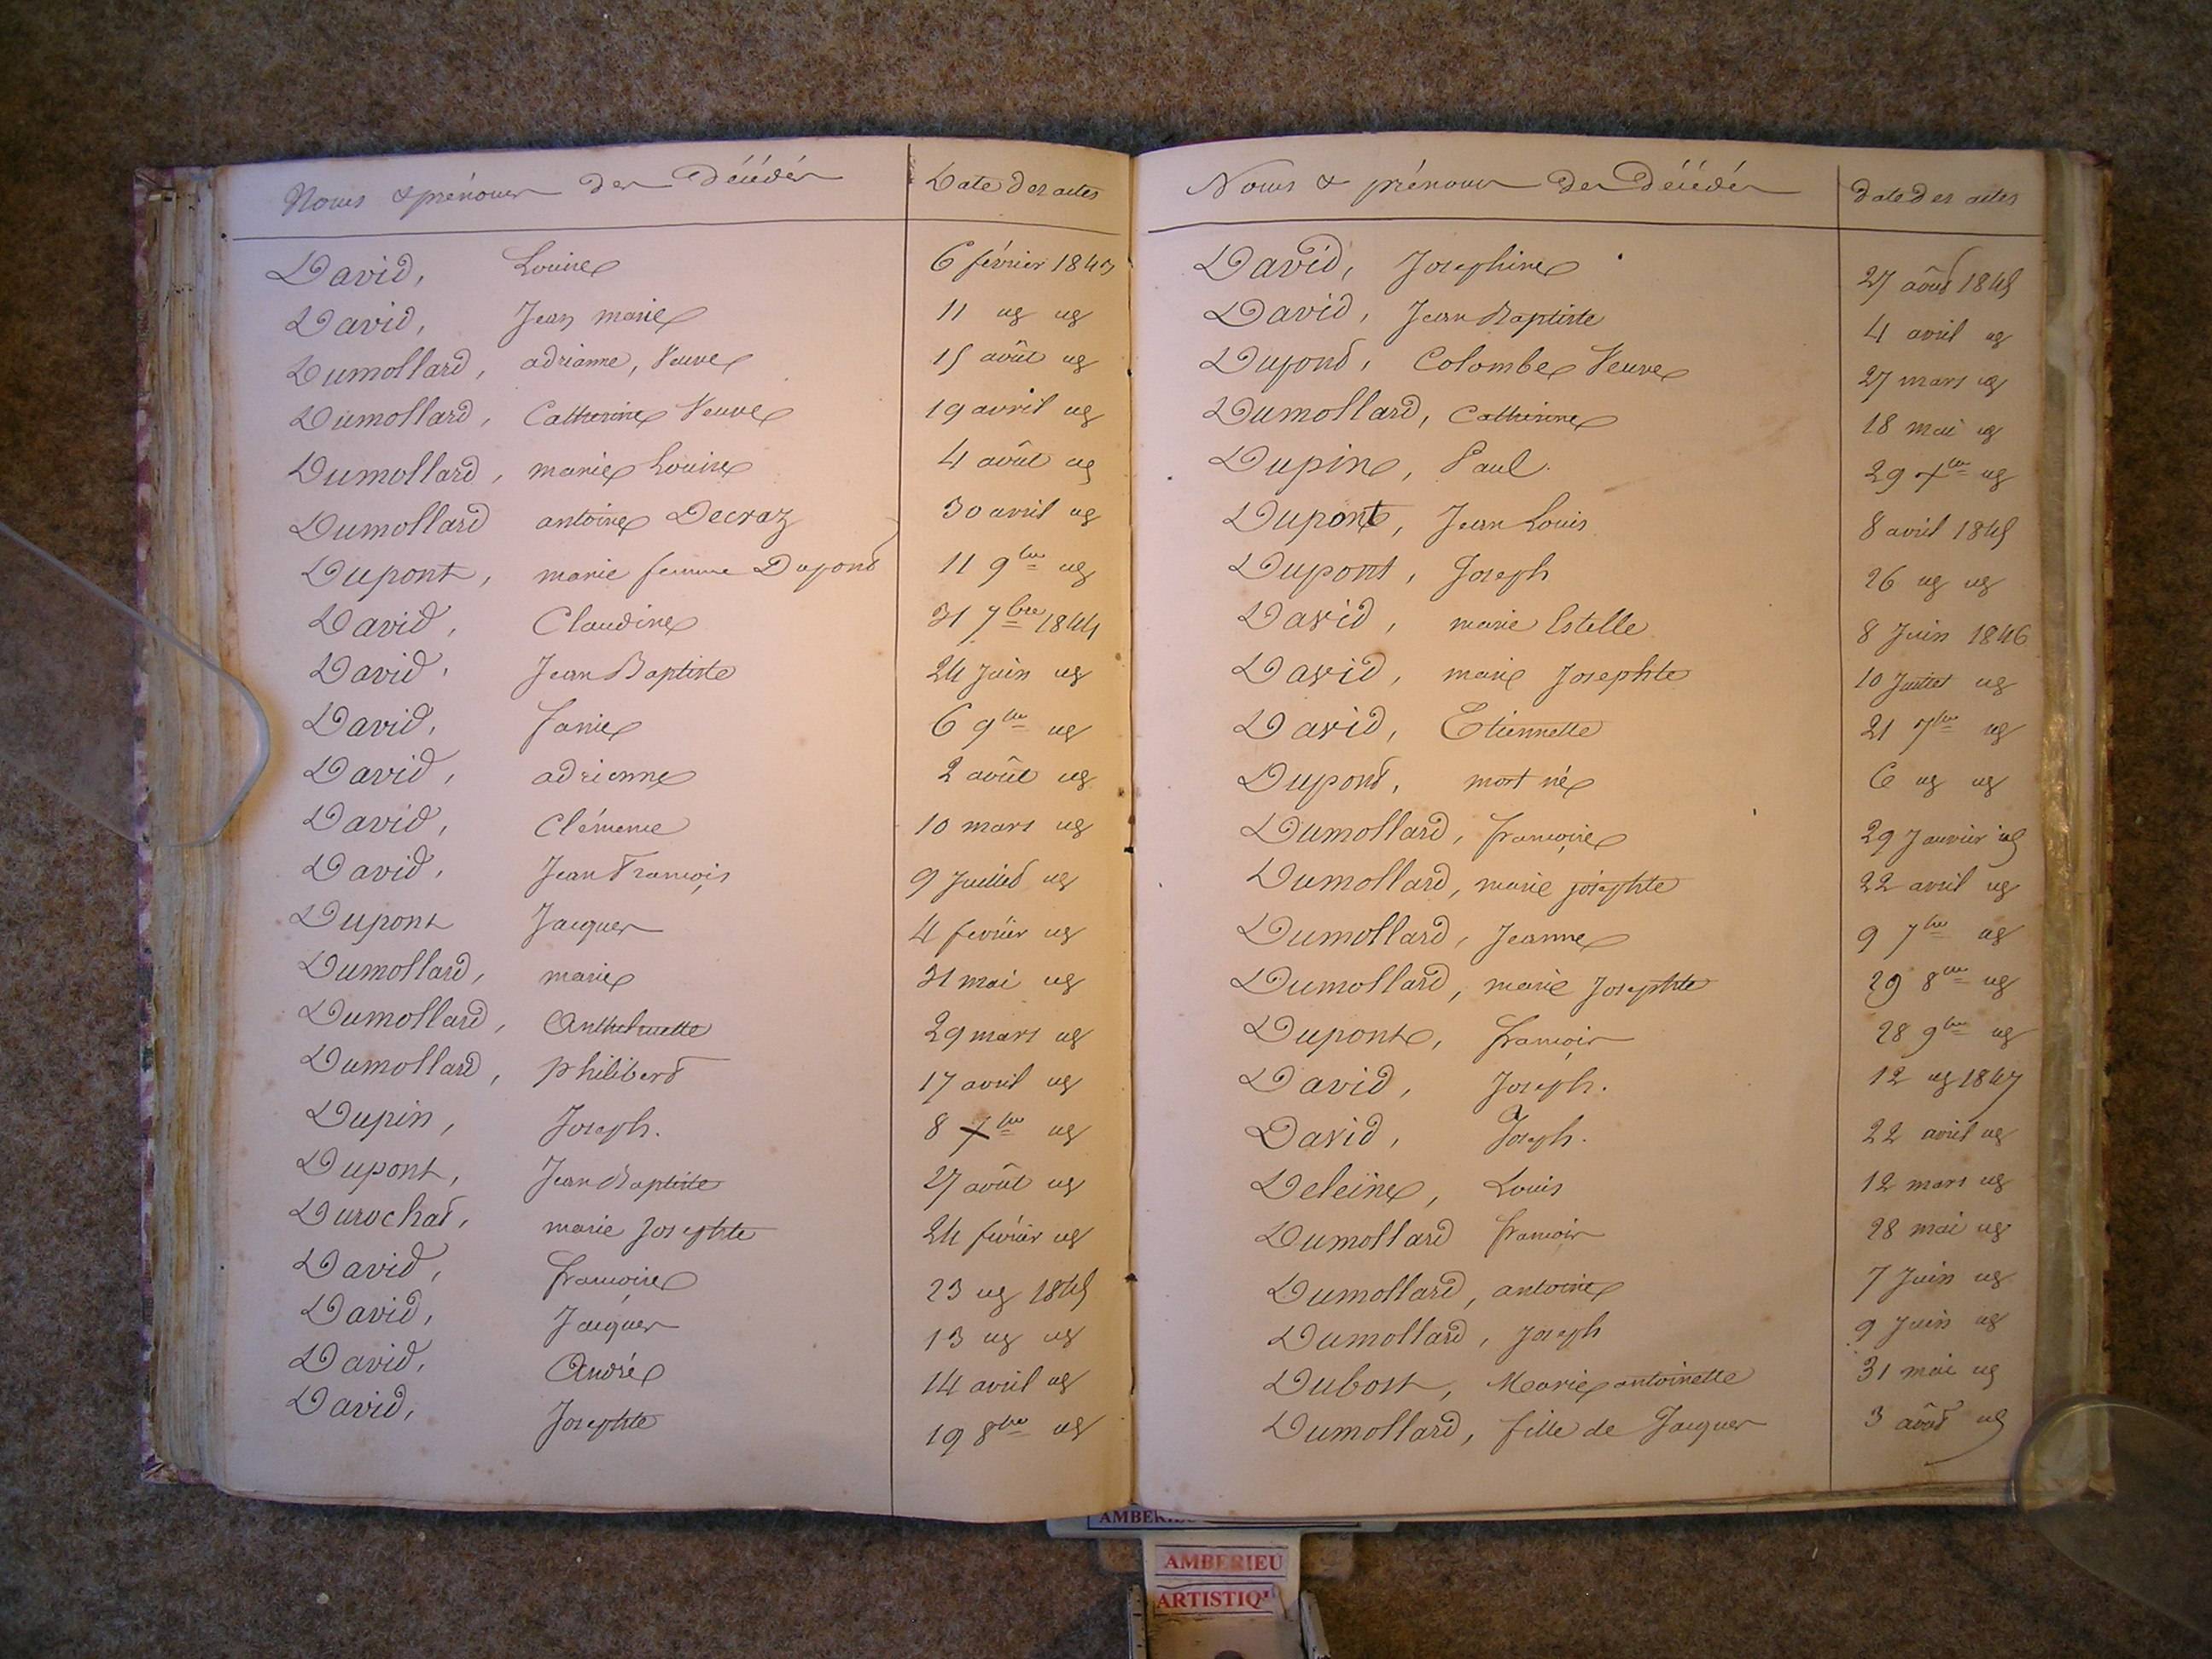 Noms & prénoms des Décédés
Date des actes
David, Louise 6 février 1843
David, Jean marie 11 ug ug
Dumollard, adrianne, Veuve 15 août ug
Dumollard, Catherine Veuve 19 avril ug
Dumollard, marie Louise 4 août ug
Dumollard antoine Decraz 30 avril ug
Dupont, marie femme Dupond 11 9bre ug
David, Claudine 31 7bre 1844
David, Jean Baptiste 24 Juin ug
David, fanie 6 9bre ug
David, adrienne 2 août ug
David, Clémence 10 mars ug
David, Jean François 9 Juillet ug
Dupont Jacques 4 février ug
Dumollard, marie 31 mai ug
Dumollard, Anthelmette 29 mars ug
Dumollard, philibert 17 avril ug
Dupin, Joseph. 8 Xbre ug
Dupont, Jean Baptiste 27 août ug
Durochat, marie Josephte 24 février ug
David, françoise 23 ug 1845
David, Jacques 13 ug ug
David, André 14 avril ug
David, Josephte 19 8bre ug
Noms & prénoms des Décédés
Date des actes
David, Josephine 27 août 1845
David, Jean Baptiste 4 avril ug
Dupond, Colombe Veuve 27 mars ug
Dumollard, Catherine 18 mai ug
Dupin, Paul. 29 Xbre ug
Dupont, Jean Louis 8 avril 1845
Dupont, Joseph 26 ug ug
David, marie Estelle 8 Juin 1846
David, marie Josephte 10 Juillet ug
David, Etiennette 21 7bre ug
Dupond, mort né 6 ug ug
Dumollard, françoise 29 Janvier ug
Dumollard, marie josephte 22 avril ug
Dumollard, Jeanne 9 7bre ug
Dumollard, marie Josephte 29 8bre ug
Dupont, françois 28 9bre ug
David, Joseph. 12 ug 1847
David, Joseph. 22 avril ug
Deleine, Louis 12 mars ug
Dumollard françois 28 mai ug
Dumollard, antoine 7 Juin ug
Dumollard, Joseph 9 Juin ug
Dubost, Marie antoinette 31 mai ug
Dumollard, fille de Jacques 3 août ug
AMBERIEU
ARTISTIQU